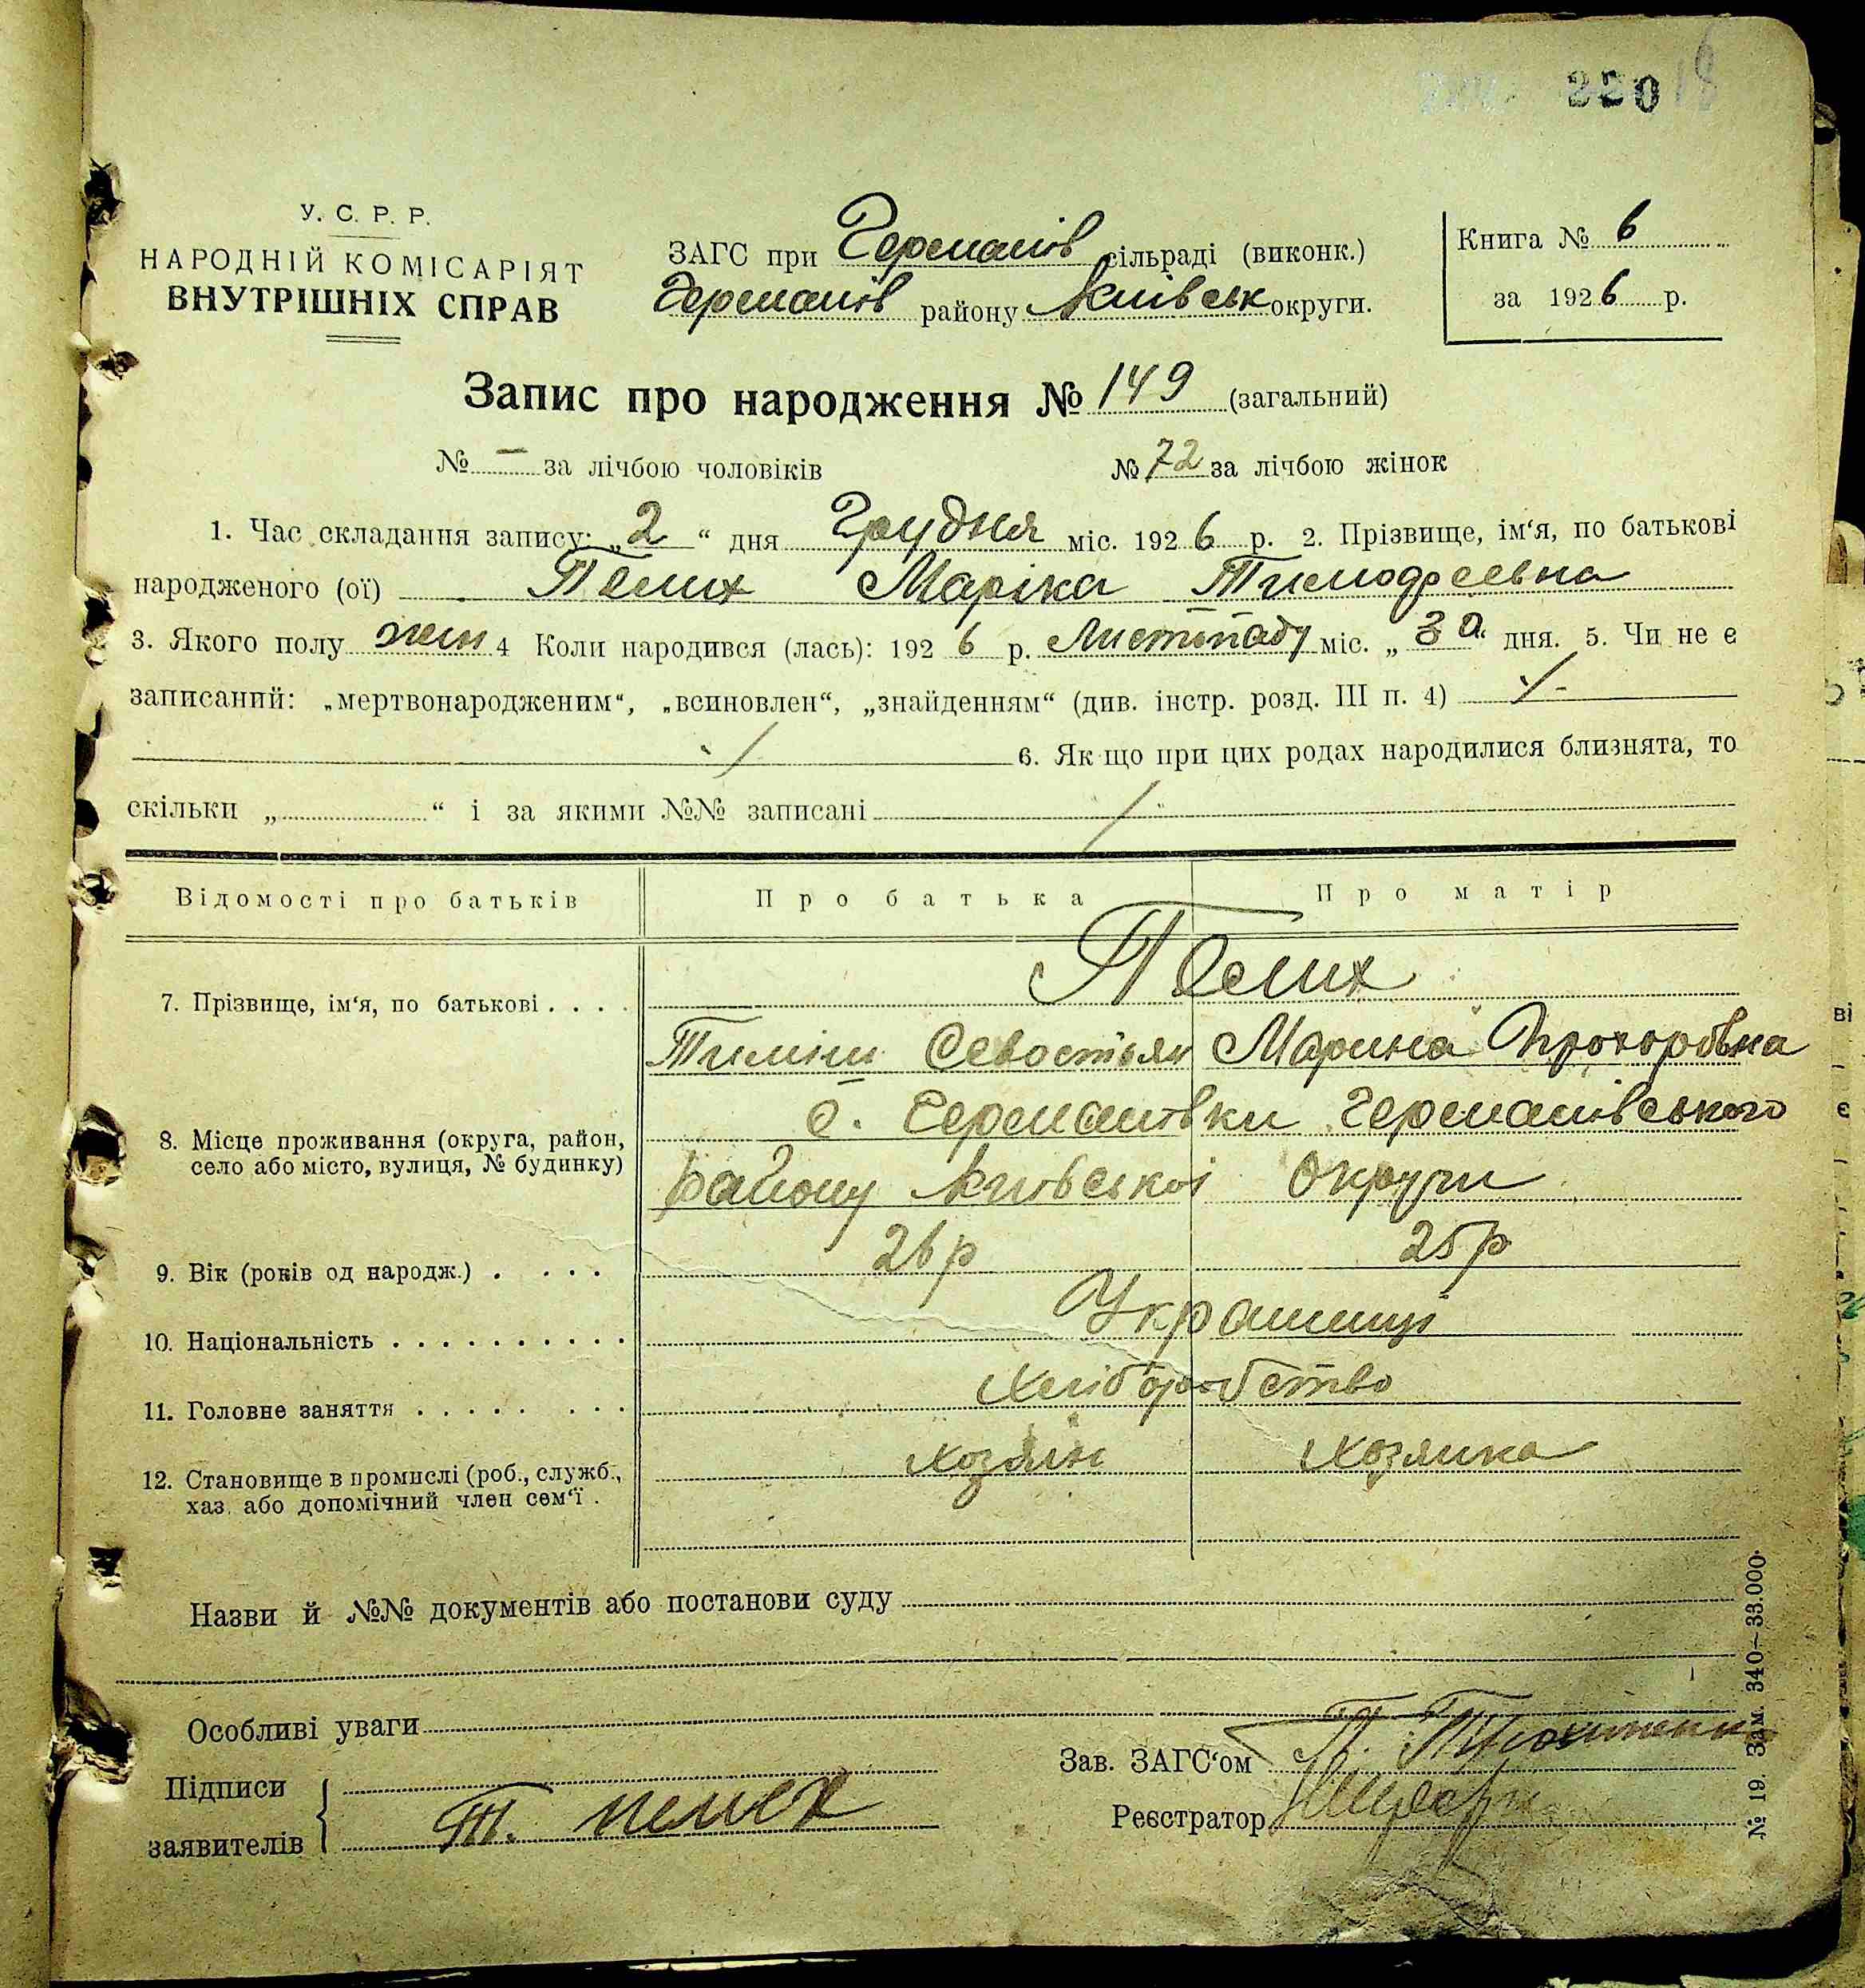 220
У. С. Р. Р.
НАРОДНІЙ КОМІСАРІЯТ
ВНУТРІШНІХ СПРАВ
ЗАГС при Германів сільраді (виконк.)
Германів району Київськ округи.
Книга № 6
за 1926 р.
Запис про народження № 149 (загальний)
№ — за лічбою чоловіків № 72 за лічбою жінок
1. Час складання запису: „2“ дня Грудня міс. 1926 р. 2. Прізвище, ім‘я, по батькові
народженого (ої) Пелих Маріка Тимофеевна
3. Якого полу жін 4 Коли народився (лась): 1926 р. Листопаду міс. „30“ дня. 5. Чи не є
записаний: „мертвонародженим“, „всиновлен“, „знайденням“ (див. інстр. розд. III п. 4)
6. Як що при цих родах народилися близнята, то
скільки „ “ і за якими №№ записані
Відомості про батьків Про батька Про матір
Пелих
7. Прізвище, ім‘я, по батькові . . . .
Тиміш Севостьян Марина Прохоровна
с. Германовки Германівського
8. Місце проживання (округа, район,
село або місто, вулиця, № будинку)
району Київської Округи
9. Вік (років од народж.) . . . . 26 р 25 р
10. Національність . . . . . . . . . . Українці
11. Головне заняття . . . . . . . . Хліборобство
12. Становище в промислі (роб., служб.,
хаз. або допомічний член сем‘ї .
хозяін хозяйка
Назви й №№ документів або постанови суду
Особливі уваги
Підписи
заявителів
Т. пелих
Зав. ЗАГС‘ом
Реєстратор
№ 19. Зам. 340—33.000.